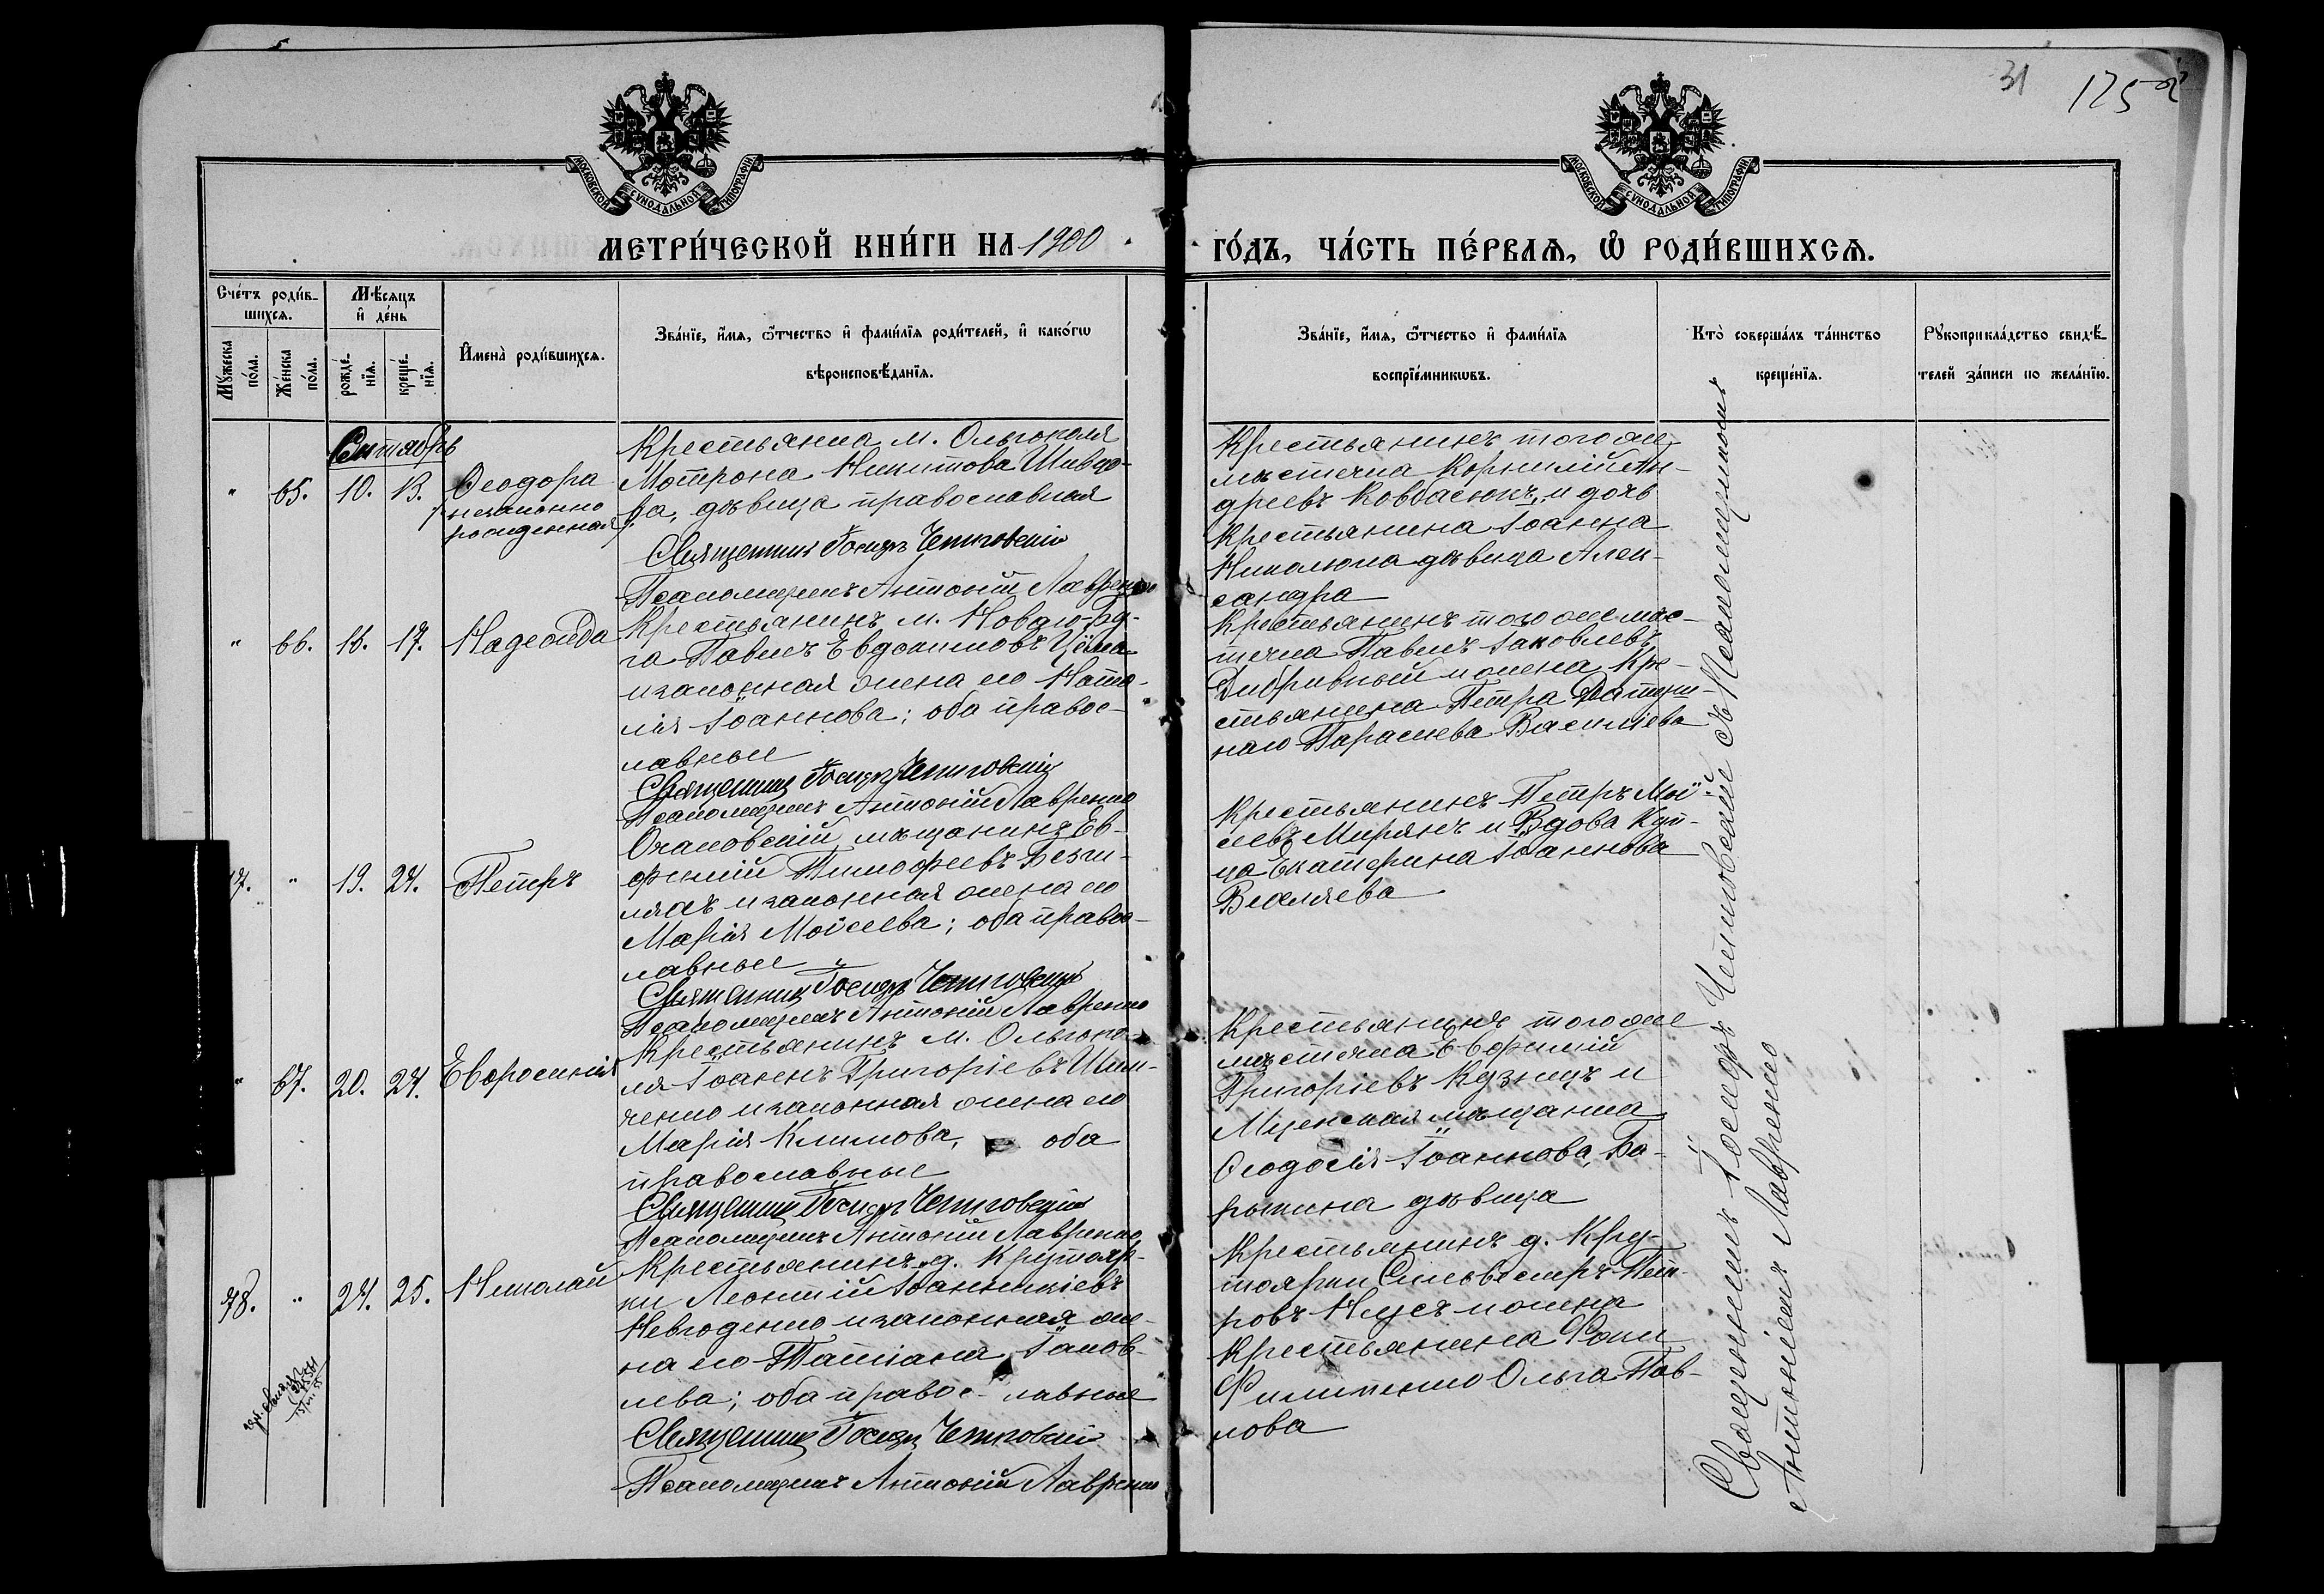 31 125
МОСКОВСКОЙ СУНОДАЛЬНОЙ ТИПОГРАФІИ
МОСКОВСКОЙ СУНОДАЛЬНОЙ ТИПОГРАФІИ
МЕТРИ́ЧЕСКОЙ КНИ́ГИ НА 1900
ГО́ДЪ, ЧА́СТЬ ПЕ́РВАѦ, Ѡ҆ РОДИ́ВШИХСѦ.
Счéтъ роди́в-
шихсѧ.
Мꙋ́жеска по́ла.
Же́нска по́ла.
Мѣ́сѧцъ
и҆ де́нь
рожде́-
нїѧ.
креще́-
нїѧ.
И҆мена̀ роди́вшихсѧ.
Зва́нїе, и҆́мѧ, ѻ҆́тчество и҆ фами́лїѧ роди́телей, и҆ како́гѡ
вѣроисповѣ́данїѧ.
Зва́нїе, и҆́мѧ, ѻ҆́тчество и҆ фами́лїѧ
воспрїе́мникѡвъ.
Кто̀ соверша́лъ та́инство
креще́нїѧ.
Рꙋкоприкла́дство свидѣ́-
телей за́писи по жела́нїю.
Сентябрь
" 65. 10. 13. Ѳеодора
незаконно
рожденная
Крестьянка м. Ольгополя
Мотрона Никитова Шевцо-
ва, дѣвица православная
Священникъ Іосифъ Чепиговскій
Псаломщикъ Антоній Лавренко
Крестьянинъ тогоже
мѣстечка Корнилій Ан-
дреевъ Ковбасюкъ и дочь
Крестьянина Іоанна
Николюка дѣвица Алек-
сандра
" 66. 15. 17. Надежда
Крестьянинъ м. Новаго-Бу-
га Павелъ Евдокимовъ
и законная жена его Ната-
лія Іоаннова; оба правос-
лавные
Священникъ Іосифъ Чепиговскій
Псаломщикъ Антоній Лавренко
Крестьянинъ того же мѣс-
течка Павелъ Іаковлевъ
Дибривный и жена Кре-
стьянина Петра
наго Параскева Василіева
19. 24. Петръ
Очаковскій мѣщанинъ Ев-
фимій Тимофеевъ
и законная жена его
Марія Моѵсеева; оба правос-
лавные
Священникъ Іосифъ Чепиговскій
Псаломщикъ Антоній Лавренко
Крестьянинъ Петръ Моѵ-
сеевъ Мирянъ и Вдова Куп-
ца Екатерина Іоаннова
Беляева
" 67. 20. 24. Евфросинія
Крестьянинъ м. Ольгопо-
ля Іоаннъ Григоріевъ
ченко и законная жена его
Марія Климова, оба
православные
Священникъ Іосифъ Чепиговскій
Псаломщикъ Антоній Лавренко
Крестьянинъ тогоже
мѣстечка Евфимій
Григоріевъ Кузнецъ и
Мценская мѣщанка
Ѳеодосія Іоаннова, Бо-
рыкина дѣвица
78. " 24. 25. Николай
Крестьянинъ д. Крутояр-
ки Леонтій Іоанникіевъ
Невгоденко и законная же-
на его Татіана Іаков-
лева; оба правос-лавные
Священникъ Іосифъ Чепиговскій
Псаломщикъ Антоній Лавренко
Крестьянинъ д. Кру-
тоярки Сильвестръ Пет-
ровъ и жена
Крестьянина Ѳомы
Филипенко Ольга Пав-
лова
Священникъ Іосифъ Чепиговскій съ Псаломщикомъ
Антоніемъ Лавренко